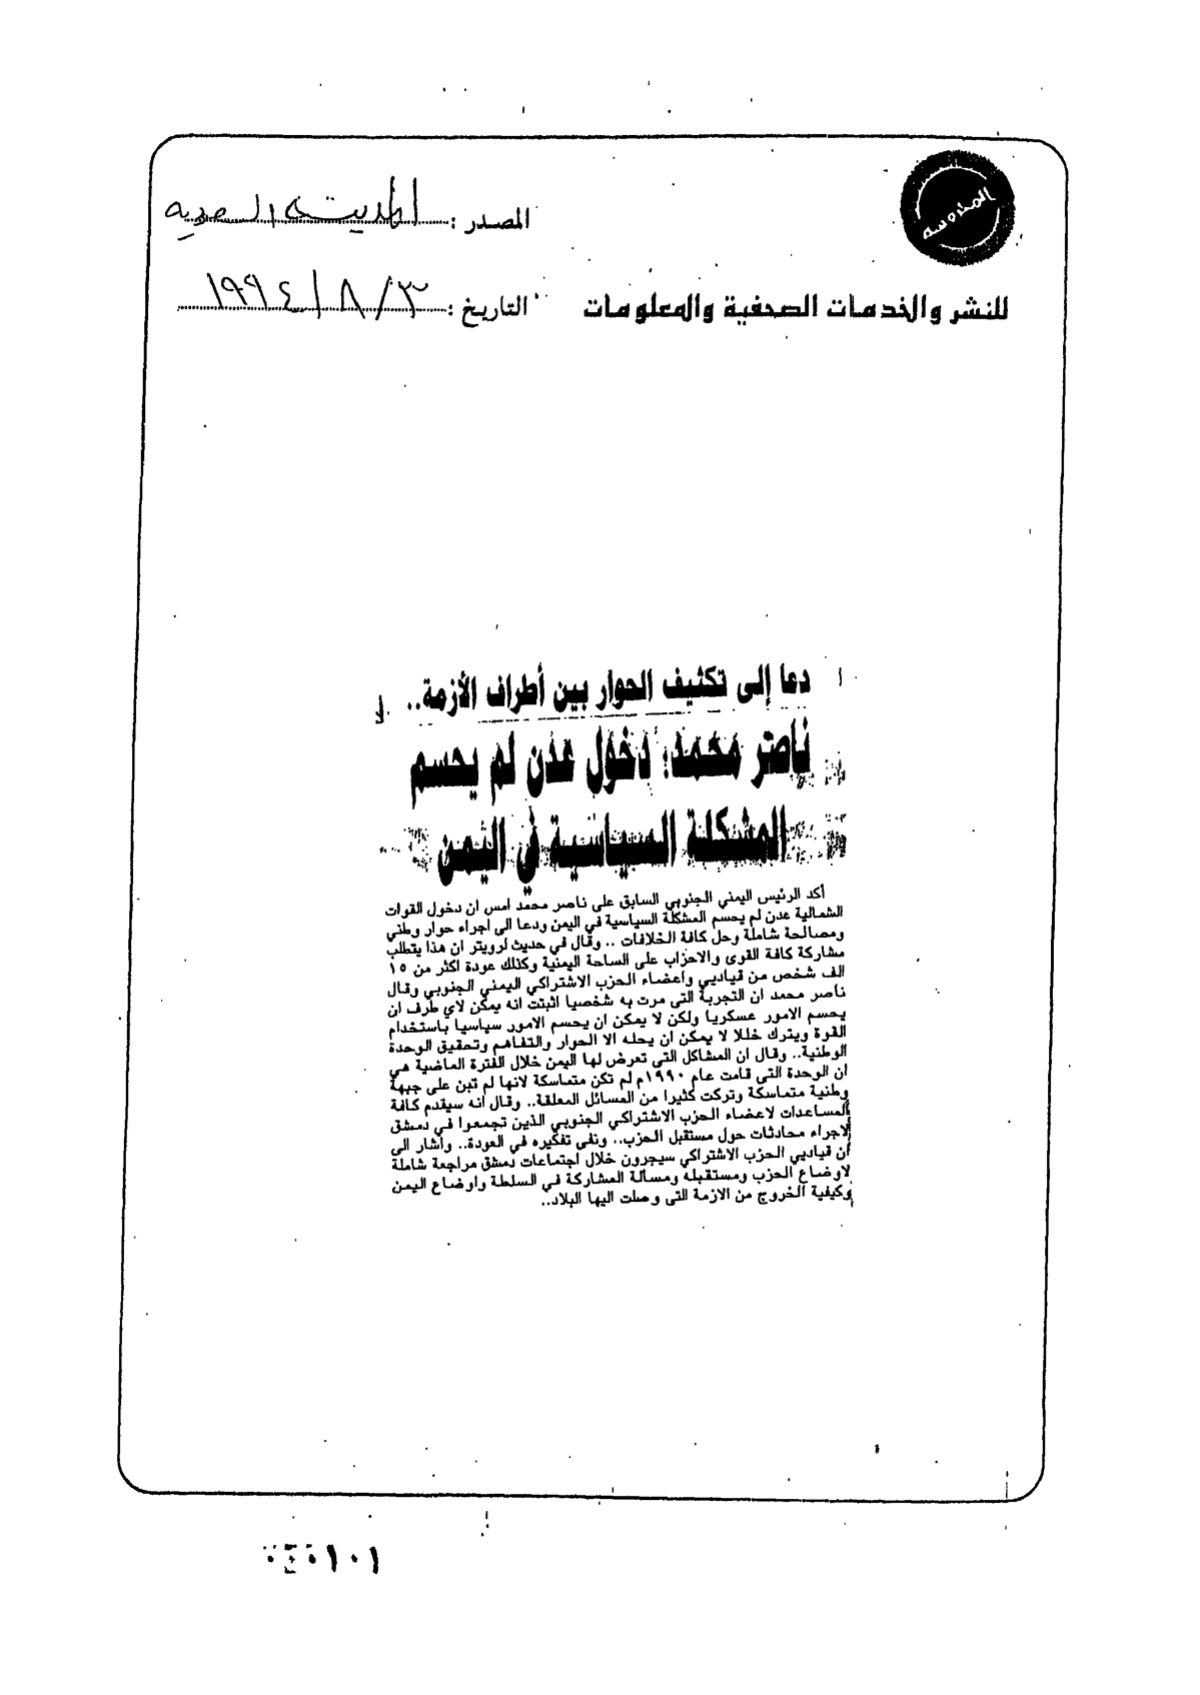 المحروسة
المصدر : المدينة السعودية
للنشر والخدمات الصحفية والمعلومات
التاريخ : ٣ / ٨ / ١٩٩٤
دعا إلى تكثيف الحوار بين أطراف الأزمة..
ناصر محمد: دخول عدن لم يحسم
المشكلة السياسية في اليمن
أكد الرئيس اليمني الجنوبي السابق على ناصر محمد امس ان دخول القوات
الشمالية عدن لم يحسم المشكلة السياسية في اليمن ودعا الى اجراء حوار وطني
ومصالحة شاملة وحل كافة الخلافات .. وقال في حديث لرويتر ان هذا يتطلب
مشاركة كافة القوى والاحزاب على الساحة اليمنية وكذلك عودة اكثر من ١٥
الف شخص من قياديي واعضاء الحزب الاشتراكي اليمني الجنوبي وقال
ناصر محمد ان التجربة التى مرت به شخصيا اثبتت انه يمكن لاي طرف ان
يحسم الامور عسكريا ولكن لا يمكن ان يحسم الامور سياسيا باستخدام
القوة ويترك خللا لا يمكن ان يحله الا الحوار والتفاهم وتحقيق الوحدة
الوطنية.. وقال ان المشاكل التى تعرض لها اليمن خلال الفترة الماضية هي
ان الوحدة التى قامت عام ١٩٩٠م لم تكن متماسكة لانها لم تبن على جبهة
وطنية متماسكة وتركت كثيرا من المسائل المعلقة.. وقال انه سيقدم كافة
المساعدات لاعضاء الحزب الاشتراكي الجنوبي الذين تجمعوا في دمشق
لاجراء محادثات حول مستقبل الحزب.. ونفى تفكيره في العودة.. وأشار الى
أن قياديي الحزب الاشتراكي سيجرون خلال اجتماعات دمشق مراجعة شاملة
لاوضاع الحزب ومستقبله ومسألة المشاركة في السلطة واوضاع اليمن
وكيفية الخروج من الازمة التى وصلت اليها البلاد..